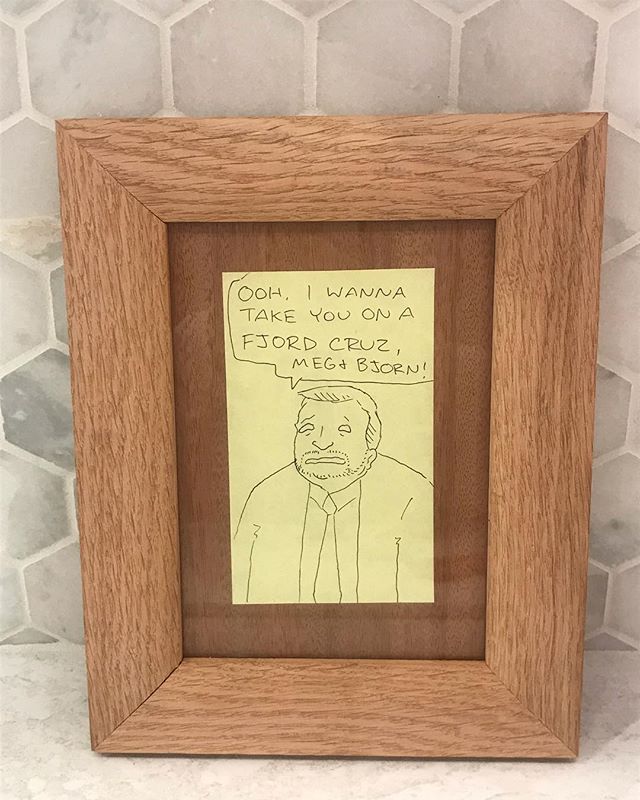 OOH, I WANNA
TAKE YOU ON A
FJORD CRUZ,
MEG & BJORN!